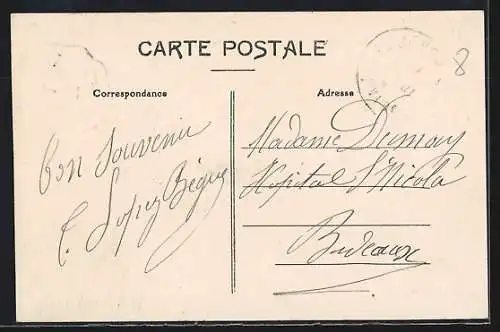 CARTE POSTALE
Correspondance
Adresse
8
Bon Souvenir
Madame Dumay
Hopital St Nicola
Bordeaux